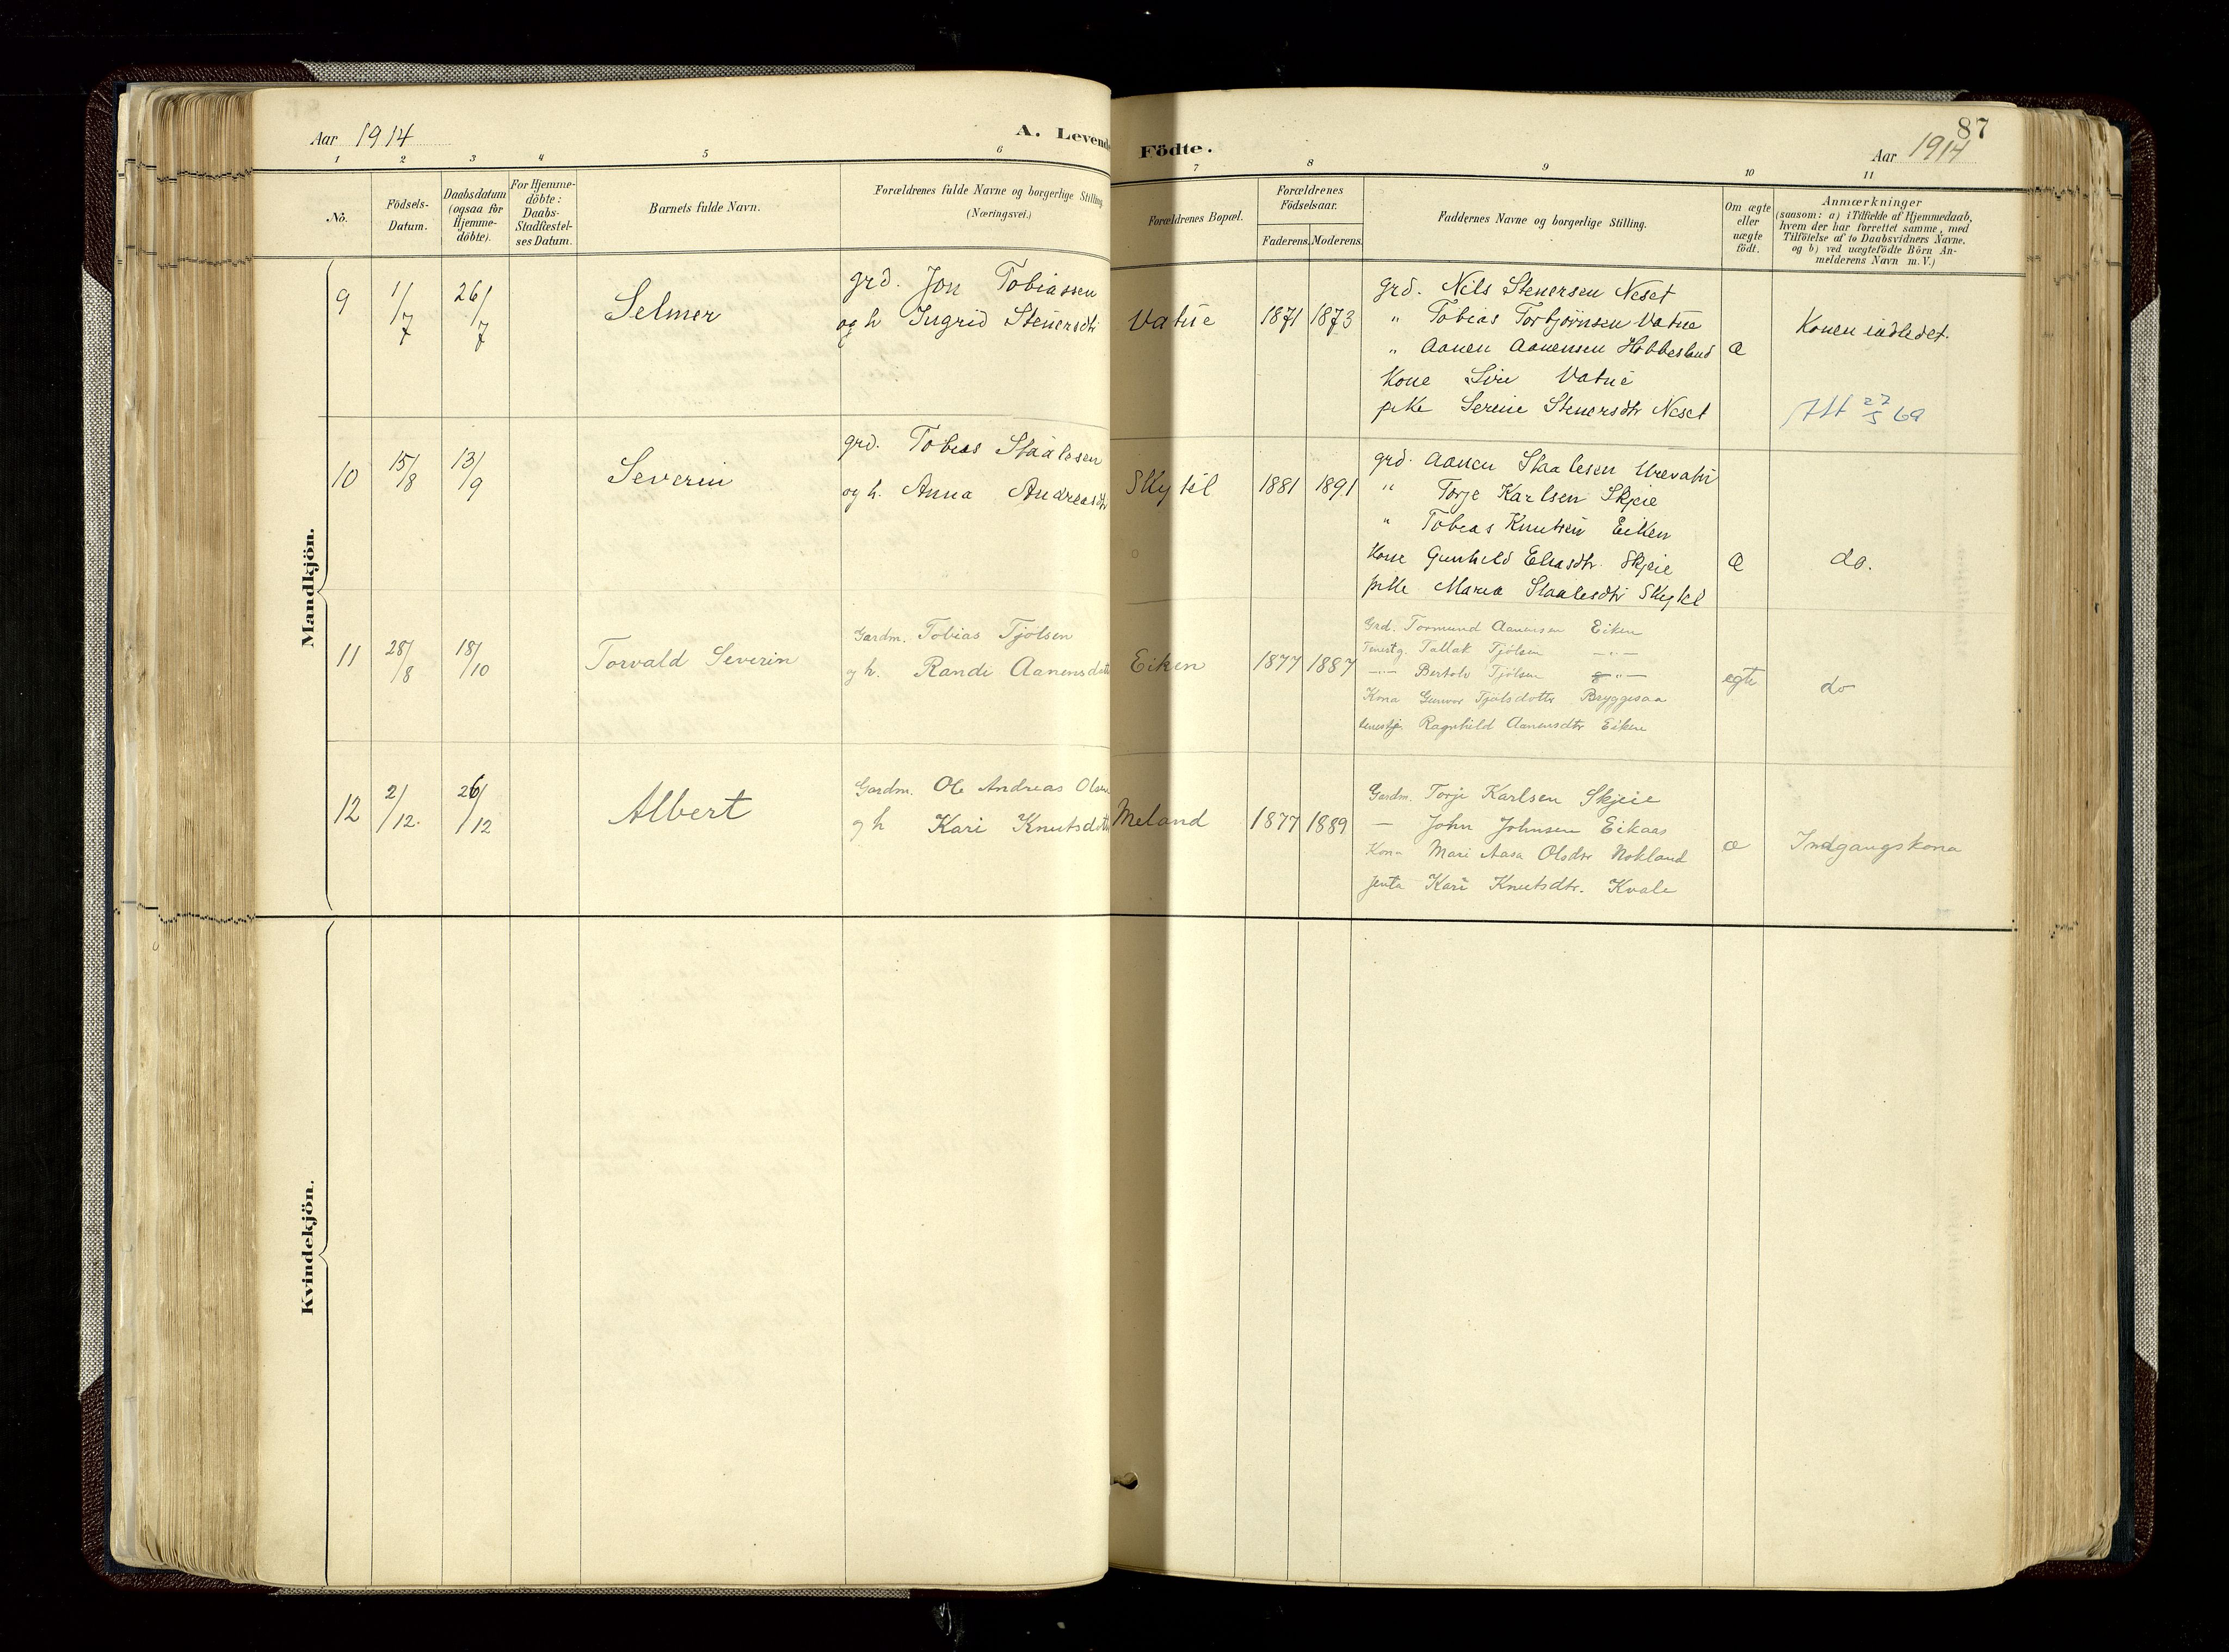 87
Aar 1914
A. Levende
Födte.
Aar 1914
1 2 3 4 5 6 7 8 9 10 11
No.
Födsels-
Datum.
Daabsdatum
(ogsaa for
Hjemme-
döbte).
For Hjemme-
döbte:
Daabs-
Stadfæstel-
ses Datum.
Barnets fulde Navn.
Forældrenes fulde Navne og borgerlige Stilling
(Næringsvei.)
Forældrenes Bopæl.
Forældrenes
Födselsaar.
Faderens. Moderens.
Faddernes Navne og borgerlige Stilling.
Om ægte
eller
uægte
födt.
Anmærkninger
(saasom: a) i Tilfælde af Hjemmedaab,
hvem der har forrettet samme, med
Tilföielse af to Daabsvidners Navne.
og b) ved uægtefödte Börn An-
melderens Navn m. V.)
Mandkjön.
9 1/7 26/7 Selmer
grd. Jon Tobiassen
og h Ingrid Stenersdtr
Vatne 1871 1873
grd. Nils Stenersen Neset
" Tobias Torbjørnsen Vatne
" Aanen Aanensen Hobbesland
Kone Siri Vatne
pike Serine Stenersdtr Neset
æ
Konen indledet.
Att 27/5 69
10 15/8 13/9 Severin
grd. Tobias Staalesen
og h. Anna Andreasdtr
Skykil 1881 1891
grd. Aanen Staalesen Urevatn
" Torje Karlsen Skjeie
" Tobias Knutsen Eiken
Kone Gunhild Eliasdtr. Skjeie
pike Maria Staalesdtr Skykil
æ
do.
11 28/8 18/10 Torvald Severin
Gardm. Tobias Tjølsen
og h. Randi Aanensdotter
Eiken 1877 1887
Grd. Tormund Aanensen Eiken
Tenestg. Tallak Tjölsen —"—
—"— Bertolv Tjölsen —"—
Kona Gunvor Tjölsdotter Bryggesaa
Ragnhild Aanensdtr Eiken
egte
do
12 2/12. 26/12 Albert
Gardm. Ole Andreas Olsen
og h Kari Knutsdotter
Meland 1877 1889
Gardm. Torje Karlsen Skjeie
— John Johnsen Eikaas
Kona Mari Aasa Olsdtr
Jenta Kari Knutsdtr. Kvale
æ
Indgangskona
Kvindekjön.